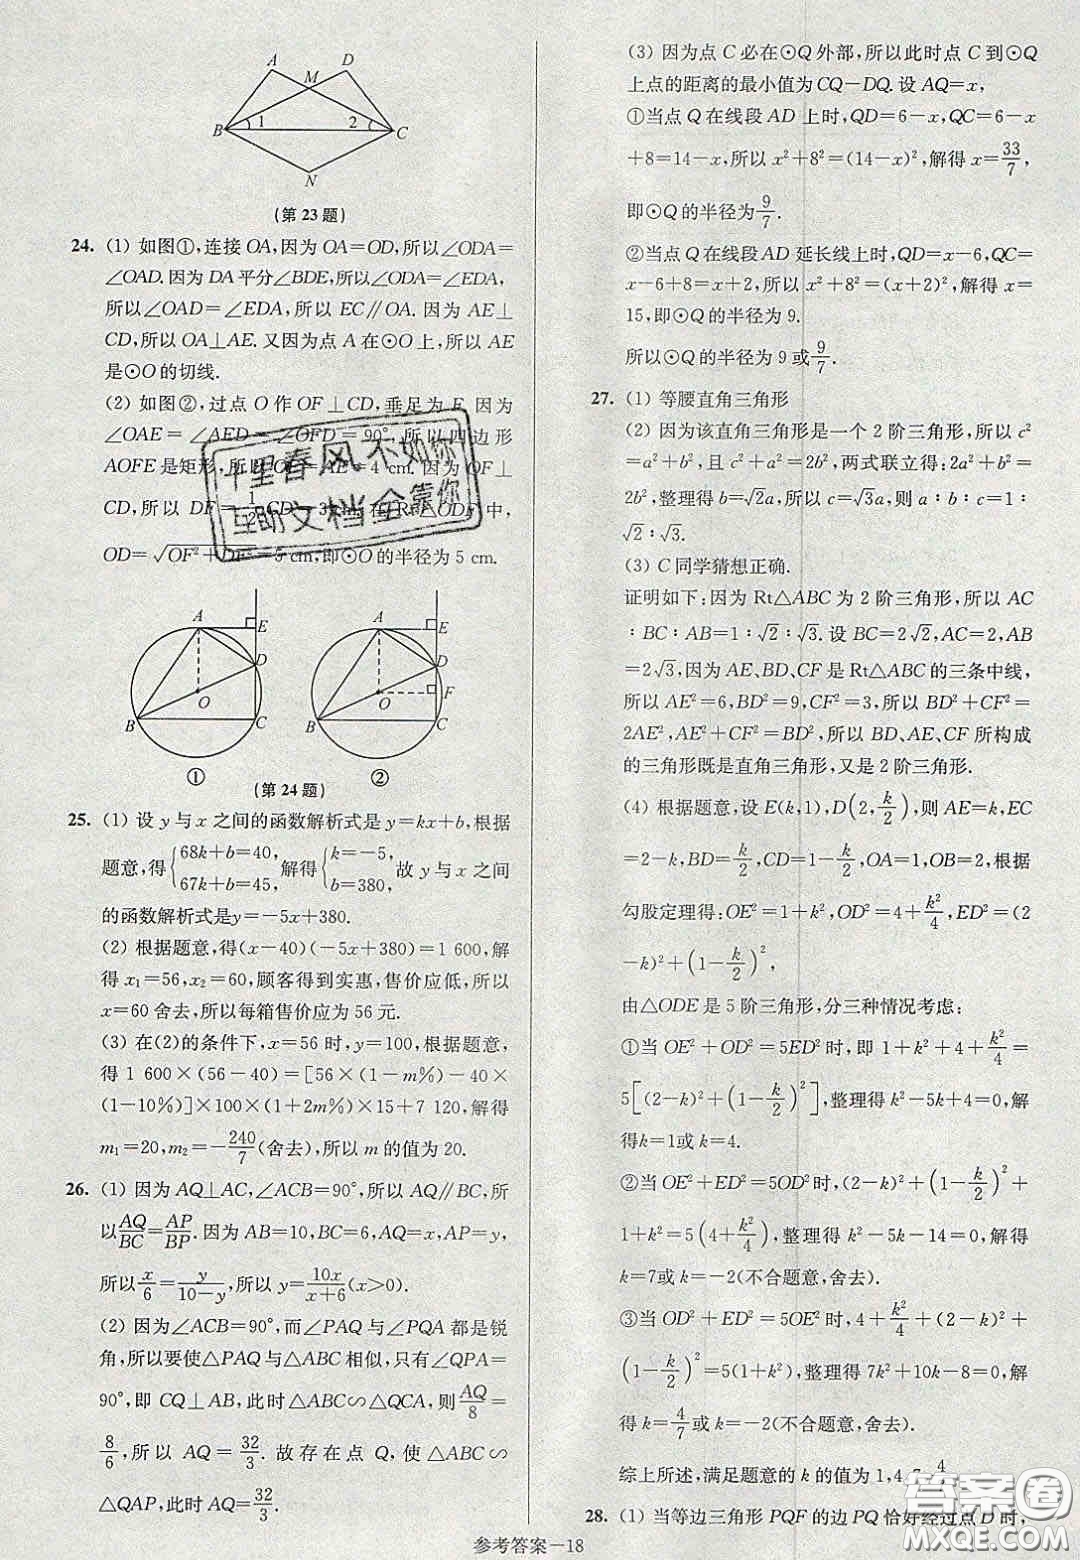 A
M
D
B
1
2
C
N
(第23题)
24. (1) 如图①,连接OA,因为OA=OD,所以∠ODA=
∠OAD.因为DA平分∠BDE,所以∠ODA=∠EDA,
所以∠OAD=∠EDA,所以EC∥OA.因为AE⊥
CD,所以OA⊥AE.又因为点A在⊙O上,所以AE
是⊙O的切线.
(2) 如图②,过点O作OF⊥CD,垂足为F.因为
∠OAE=∠AED=∠OFD=90°,所以四边形
AOFE是矩形,所以OF=AE=4 cm.
OD=√OF²+DF²=5 cm,即⊙O的半径为5 cm.
A
E
D
O
B
C
①
A
E
D
O
F
B
C
②
(第24题)
25. (1) 设y与x之间的函数解析式是y=kx+b,根据
题意,得{68k+b=40, 67k+b=45, 解得{k=-5, b=380, 故y与x之间
的函数解析式是y=-5x+380.
(2) 根据题意,得(x-40)(-5x+380)=1 600,解
得x₁=56,x₂=60,顾客得到实惠,售价应低,所以
x=60舍去,所以每箱售价应为56元.
(3) 在(2)的条件下,x=56时,y=100,根据题意,
得1 600×(56-40)=[56×(1-m%)-40×
(1-10%)]×100×(1+2m%)×15+7 120,解得
m₁=20,m₂=-240/7(舍去),所以m的值为20.
26. (1) 因为AQ⊥AC,∠ACB=90°,所以AQ∥BC,所
以AQ/BC=AP/BP.因为AB=10,BC=6,AQ=x,AP=y,
所以x/6=y/(10-y),所以y=10x/(x+6)(x>0).
(2) 因为∠ACB=90°,而∠PAQ与∠PQA都是锐
角,所以要使△PAQ与△ABC相似,只有∠QPA=
90°,即CQ⊥AB,此时△ABC∽△QCA,则AQ/8=
8/6,所以AQ=32/3.故存在点Q,使△ABC∽
△QAP,此时AQ=32/3.
(3) 因为点C必在⊙Q外部,所以此时点C到⊙Q
上点的距离的最小值为CQ-DQ.设AQ=x,
①当点Q在线段AD上时,QD=6-x,QC=6-x
+8=14-x,所以x²+8²=(14-x)²,解得x=33/7,
即⊙Q的半径为9/7.
②当点Q在线段AD延长线上时,QD=x-6,QC=
x-6+8=x+2,所以x²+8²=(x+2)²,解得x=
15,即⊙Q的半径为9.
所以⊙Q的半径为9或9/7.
27. (1) 等腰直角三角形
(2) 因为该直角三角形是一个2阶三角形,所以c²
=a²+b²,且c²+a²=2b²,两式联立得:2a²+b²=
2b²,整理得b=√2a,所以c=√3a,则a∶b∶c=1∶
√2∶√3.
(3) C同学猜想正确.
证明如下:因为Rt△ABC为2阶三角形,所以AC
∶BC∶AB=1∶√2∶√3.设BC=2√2,AC=2,AB
=2√3,因为AE、BD、CF是Rt△ABC的三条中线,
所以AE²=6,BD²=9,CF²=3,所以BD²+CF²=
2AE²,AE²+CF²=BD²,所以BD、AE、CF所构成
的三角形既是直角三角形,又是2阶三角形.
(4) 根据题意,设E(k,1),D(2,k/2),则AE=k,EC
=2-k,BD=k/2,CD=1-k/2,OA=1,OB=2,根据
勾股定理得:OE²=1+k²,OD²=4+k²/4,ED²=(2
-k)²+(1-k/2)²,
由△ODE是5阶三角形,分三种情况考虑:
①当OE²+OD²=5ED²时,即1+k²+4+k²/4=
5[(2-k)²+(1-k/2)²],整理得k²-5k+4=0,解
得k=1或k=4.
②当OE²+ED²=5OD²时,(2-k)²+(1-k/2)²+
1+k²=5(4+k²/4),整理得k²-5k-14=0,解得
k=7或k=-2(不合题意,舍去).
③当OD²+ED²=5OE²时,4+k²/4+(2-k)²+
(1-k/2)²=5(1+k²),整理得7k²+10k-8=0,解
得k=4/7或k=-2(不合题意,舍去).
综上所述,满足题意的k的值为1,4,7,4
28. (1) 当等边三角形PQF的边PQ恰好经过点D时,
参考答案-18
千里春风不如你
互助文档全靠你
答案圈
MXQE.COM